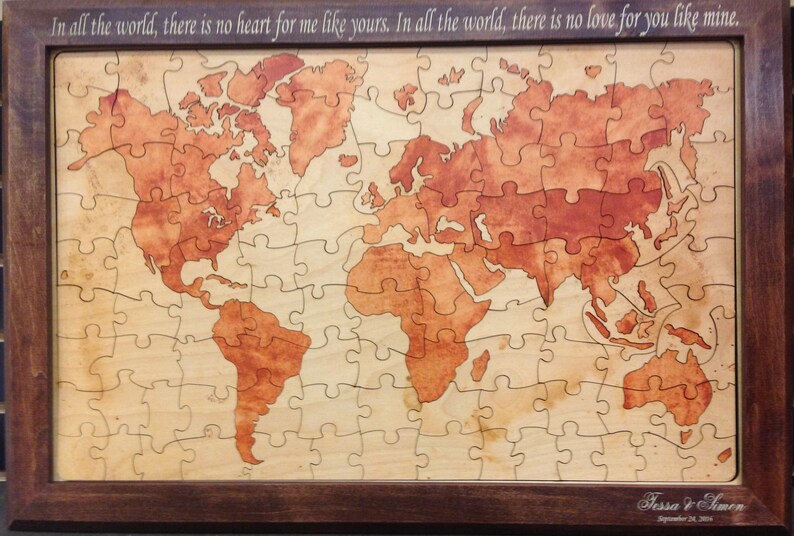 In all the world, there is no heart for me like yours. In all the world, there is no love for you like mine.
Tessa & Simon
September 24, 2016